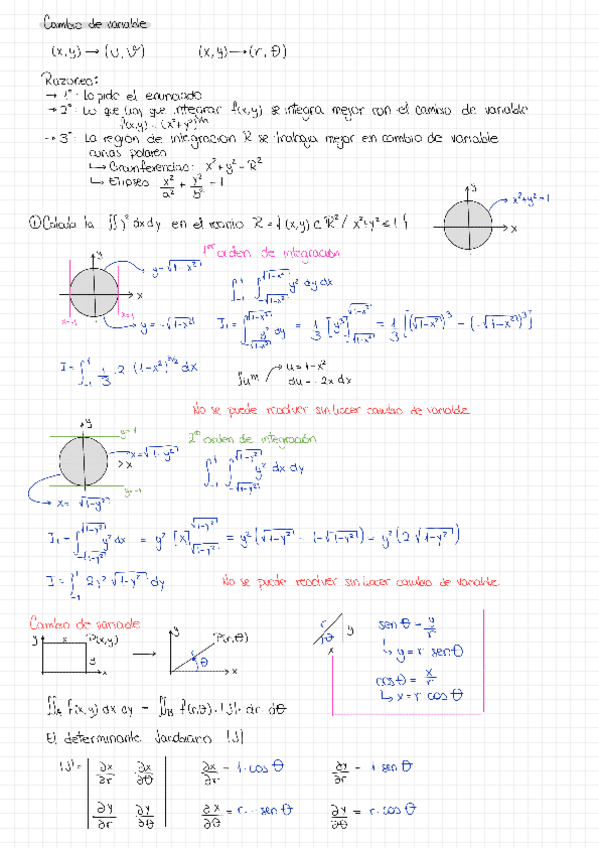 Cambio de variable
(x,y) → (u,v) (x,y) → (r,θ)
Razones:
→ 1º: Lo pide el enunciado
→ 2º: Lo que hay que integrar f(x,y) se integra mejor con el cambio de variable
f(x,y) = (x²+y²)
→ 3º: La región de integración R se trabaja mejor en cambio de variable
curvas polares
↳ Circunferencias: x²+y² = R²
↳ Elipses x²/a² + y²/b² = 1
① Calcula la ∬y² dxdy en el recinto R = {(x,y) ⊂ ℝ² / x²+y² ≤ 1}
y
x²+y² = 1
x
1er orden de integración
y
y = √(1-x²)
x
x=-1
x=1
y = -√(1-x²)
∫₋₁¹ ∫_{-√(1-x²)}^{√(1-x²)} y² dy dx
I₁ = ∫_{-√(1-x²)}^{√(1-x²)} y² dy = 1/3 [y³]_{-√(1-x²)}^{√(1-x²)} = 1/3 [(√(1-x²))³ - (-√(1-x²))³]
I = ∫₋₁¹ 1/3 · 2 (1-x²)^{3/2} dx
∫uᵐ
u = 1-x²
du = -2x dx
No se puede resolver sin hacer cambio de variable
2º orden de integración
y
y=1
x = √(1-y²)
x
y=-1
x = √(1-y²)
∫₋₁¹ ∫_{-√(1-y²)}^{√(1-y²)} y² dx dy
I₁ = ∫_{-√(1-y²)}^{√(1-y²)} y² dx = y² [x]_{-√(1-y²)}^{√(1-y²)} = y² (√(1-y²) - (-√(1-y²)) = y² (2√(1-y²))
I = ∫₋₁¹ 2y² √(1-y²) dy
No se puede resolver sin hacer cambio de variable
Cambio de variable
y x P(x,y)
y
x
→
y
P(r,θ)
r
θ
x
r
θ
y
x
sen θ = y/r
↳ y = r sen θ
cos θ = x/r
↳ x = r cos θ
∬_A f(x,y) dx dy = ∬_B f(r,θ) · |J| · dr · dθ
El determinante Jacobiano |J|
|J| = | ∂x/∂r ∂x/∂θ |
| ∂y/∂r ∂y/∂θ |
∂x/∂r = 1·cos θ
∂y/∂r = 1 sen θ
∂x/∂θ = r · -sen θ
∂y/∂θ = r·cos θ